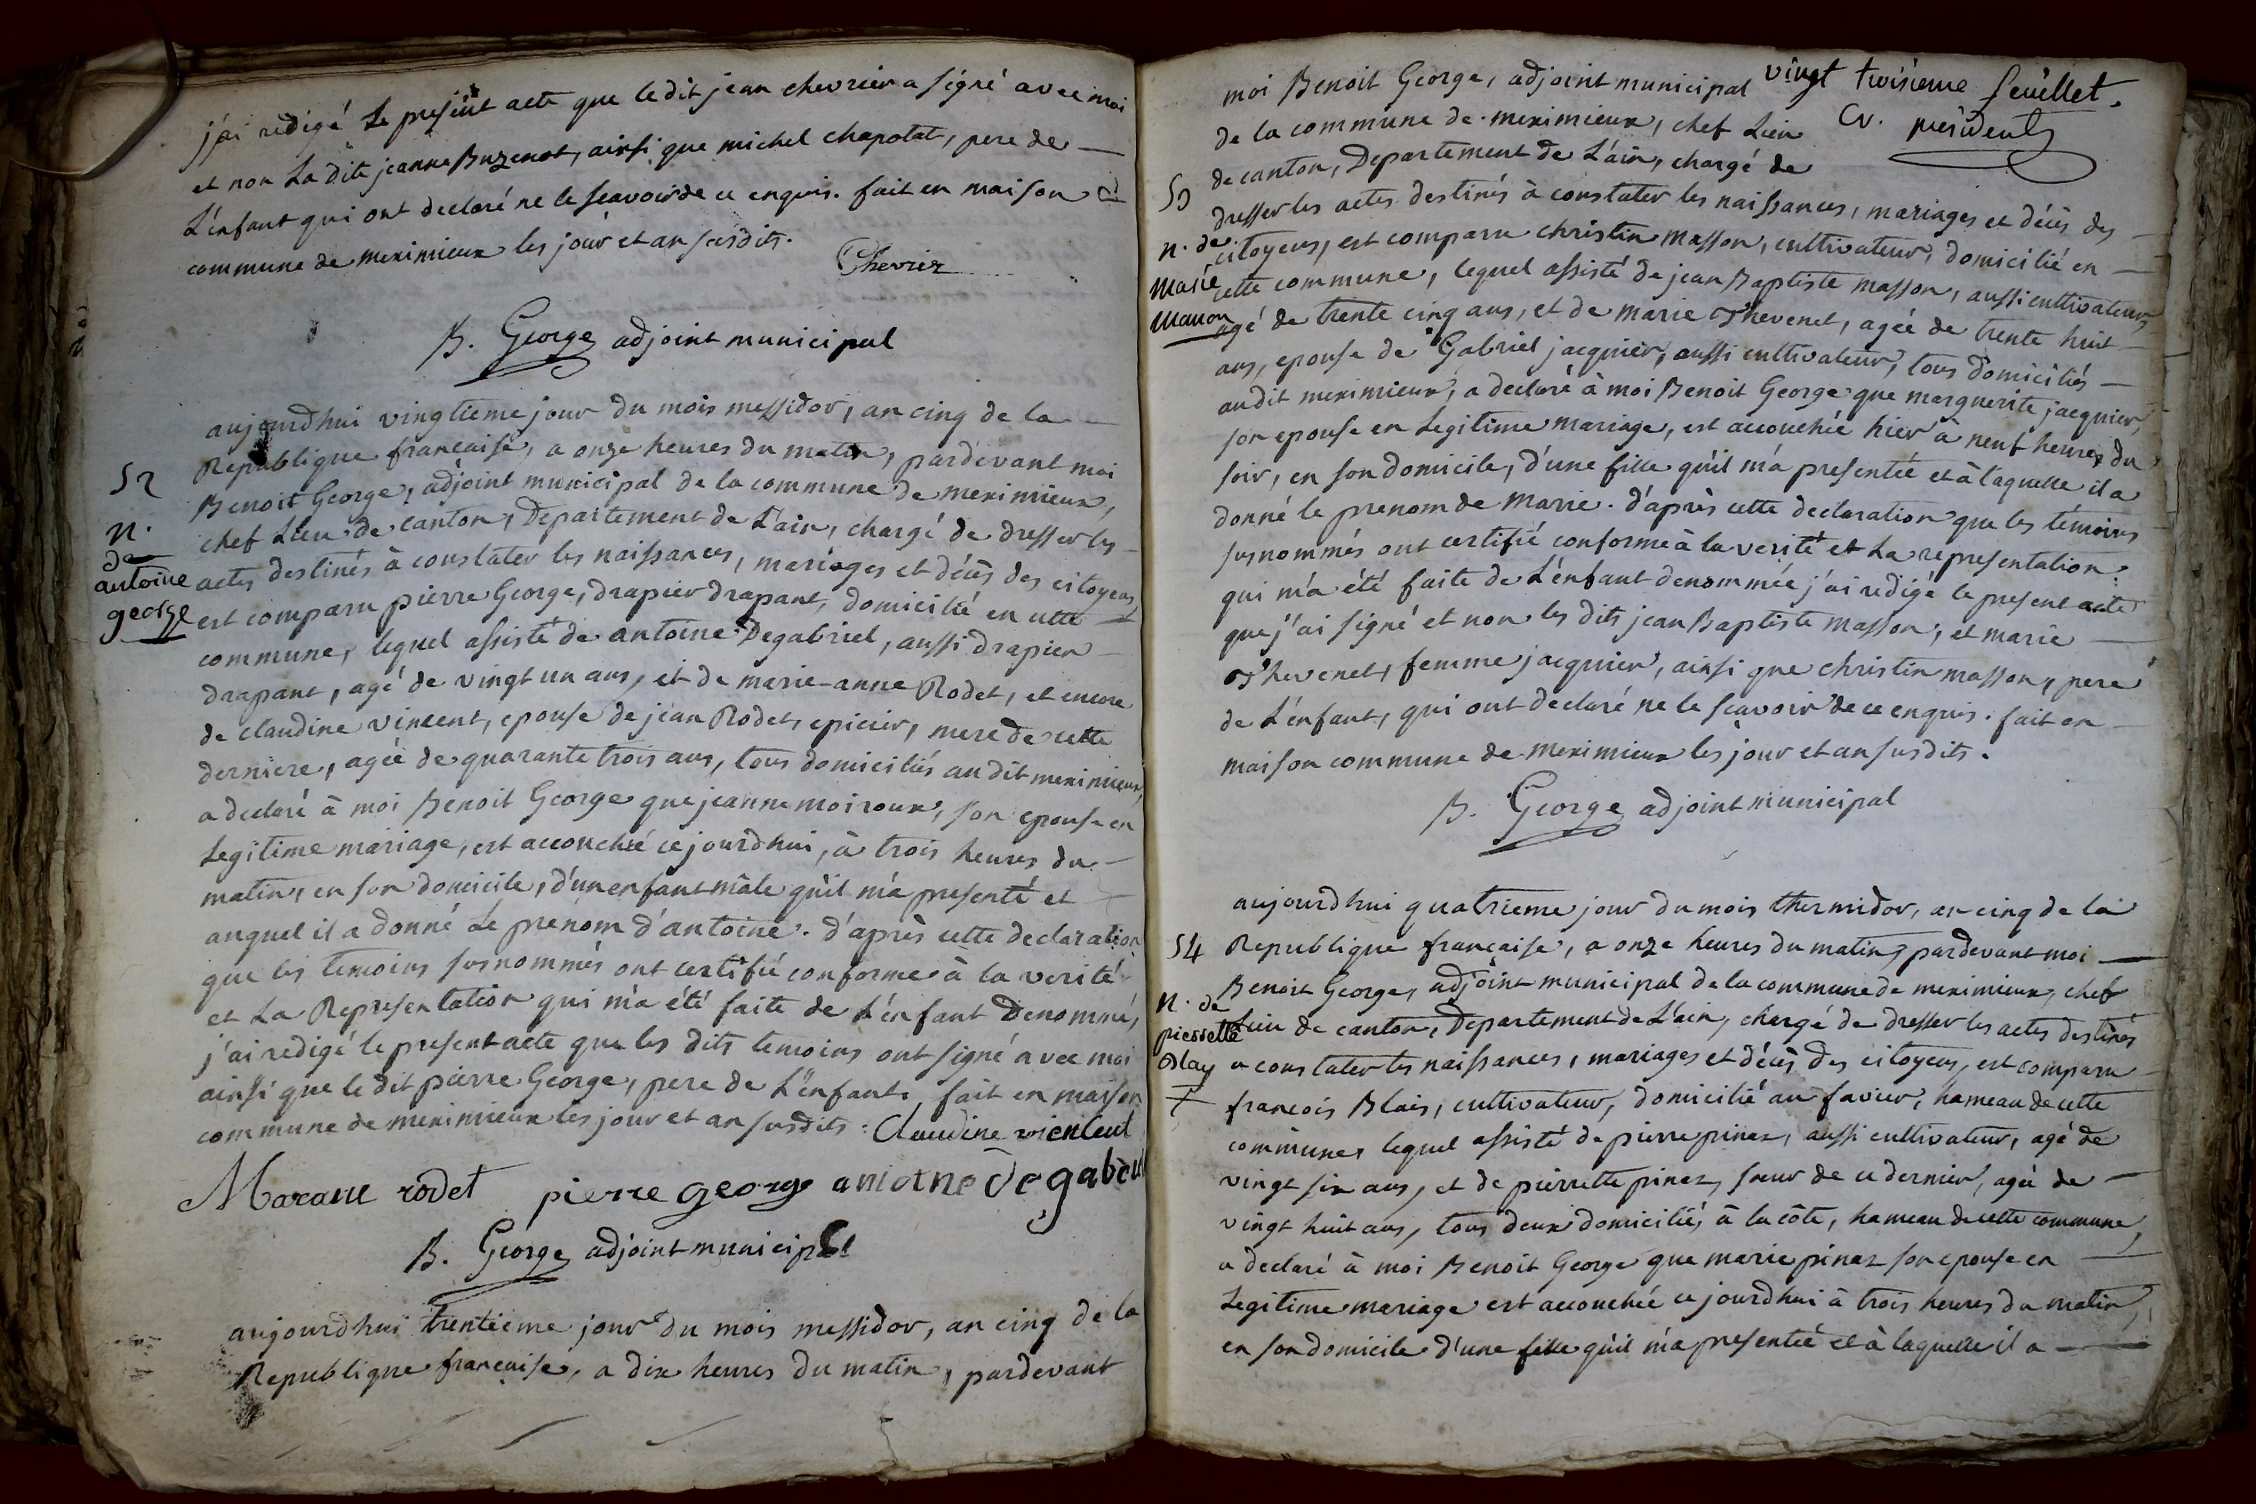 j'ai redigé Le present acte que le dit jean chevrier a signé avec moi
et non La dite jeanne Buzenot, ainsi que michel chapotat, pere de
L'enfant qui ont declaré ne le scavoir de ce enquis. fait en maison
commune de meximieux les jour et an susdits.
Chevrier
B. George adjoint municipal
aujourdhui vingtieme jour du mois messidor, an cinq de la
Republique francaise, a onze heures du matin, pardevant moi
52
Benoit George, adjoint municipal de la commune de meximieux,
chef Lieu de canton, Departement de L'ain, chargé de dresser les
n.
de
antoine
george
actes destinés à constater les naissances, mariages et décès des citoyens
est comparu pierre George, drapier drapant, domicilié en cette
commune, lequel assisté de antoine Degabriel, aussi drapier
drapant, agé de vingt un ans, et de marie-anne Rodet, et encore
de claudine vincent, epouse de jean Rodet, epicier, mere de cette
derniere, agée de quarante trois ans, tous domiciliés au dit meximieux,
a declaré à moi Benoit George que jeanne moiroux, son epouse en
Legitime mariage, est accouchée ce jourdhui, à trois heures du
matin, en son domicile, d'un enfant mâle qu'il m'a presenté et
auquel il a donné Le prenom d'antoine. d'après cette declaration
que les temoins susnommés ont certifié conforme à la verité
et La Representation qui m'a été faite de L'enfant Denommé,
j'ai redigé le present acte que les dits temoins ont signé avec moi
ainsi que le dit pierre George, pere de L'enfant. fait en maison
commune de meximieux les jour et an susdits : Claudine vientent
Marane rodet pierre george antoine de gabriel
B. George adjoint municipal
aujourdhui trentieme jour du mois messidor, an cinq de la
Republique francaise, a dix heures du matin, pardevant
vingt troisieme feuillet.
president
moi Benoit George, adjoint municipal
de la commune de meximieux, chef Lieu
de canton, Departement de L'ain, chargé de
53
dresser les actes destinés à constater les naissances, mariages et décès des
n. de
Marie
Masson
citoyens, est comparu christin Masson, cultivateur, domicilié en
cette commune, lequel assisté de jean Baptiste masson, aussi cultivateur,
agé de trente cinq ans, et de marie Thevenet, agée de trente huit
ans, epouse de Gabriel jacquier, aussi cultivateur, tous domiciliés
au dit meximieux, a declaré à moi Benoit George que marguerite jacquier,
son epouse en Legitime mariage, est accouchée hier à neuf heures du
soir, en son domicile, d'une fille qu'il m'a presentée et à laquelle il a
donné le prenom de Marie. d'après cette declaration que les témoins
susnommés ont certifié conforme à la verité et La representation
qui m'a été faite de L'enfant denommée j'ai redigé le present acte
que j'ai signé et non les dits jean Baptiste masson, et marie
Thevenet, femme jacquier, ainsi que christin masson, pere
de L'enfant, qui ont declaré ne le scavoir de ce enquis. fait en
maison commune de meximieux les jour et an susdits.
B. George adjoint municipal
aujourdhui quatrieme jour du mois thermidor, an cinq de la
54
Republique française, a onze heures du matin, pardevant moi
Benoit George, adjoint municipal de la commune de meximieux, chef
n. de
pierrette
Blay
Lieu de canton, Departement de L'ain, chargé de dresser les actes destinés
a constater les naissances, mariages et décès des citoyens, est comparu
francois Blais, cultivateur, domicilié au favier, hameau de cette
commune, lequel assisté de pierre pinaz, aussi cultivateur, agé de
vingt six ans, et de pierrette pinaz, sœur de ce dernier, agée de
vingt huit ans, tous deux domiciliés à la côte, hameau de cette commune,
a declaré à moi Benoit George que marie pinaz son epouse en
Legitime mariage est accouchée ce jourdhui à trois heures du matin
en son domicile d'une fille qu'il m'a presentée et à laquelle il a